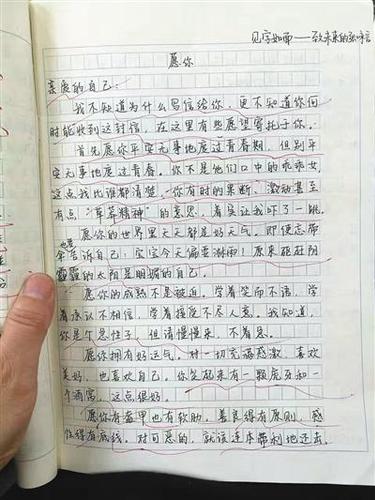 见字如面——致未来的张
愿你
亲爱的自己：
我不知道为什么写信给你，更不知道你何
时能收到这封信，在这里有些愿望寄托于你。
首先愿你平安无事地度过青春期，但别平
安无事地度过青春。你不是他们口中的乖乖女，
这点我比谁都清楚。你有时的果断、激动甚至
有点“革命精神”的意思，着实让我吓了一跳。
愿你的世界里天天都是好天气。即便忘带
伞也要告诉自己：宝宝今天偏要淋雨！原来
的太阳是明媚的自己。
愿你的成熟不是被迫。学着笑而不语，学
着承认不相信，学着接受不尽人意。我知道，
你是个急性子，但请慢慢来，不着急。
愿你拥有好运气。对一切充满感激，喜欢
美好，也喜欢自己。你笑起来有一颗虎牙和一
个酒窝，这点很好。
愿你有盔甲也有软肋，善良得有原则，感
性得有底线。对可恶的，就该连本带利地还击。